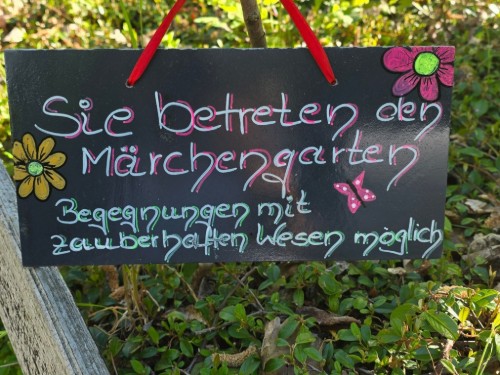 Sie betreten den
Märchengarten
Begegnungen mit
zauberhaften Wesen möglich